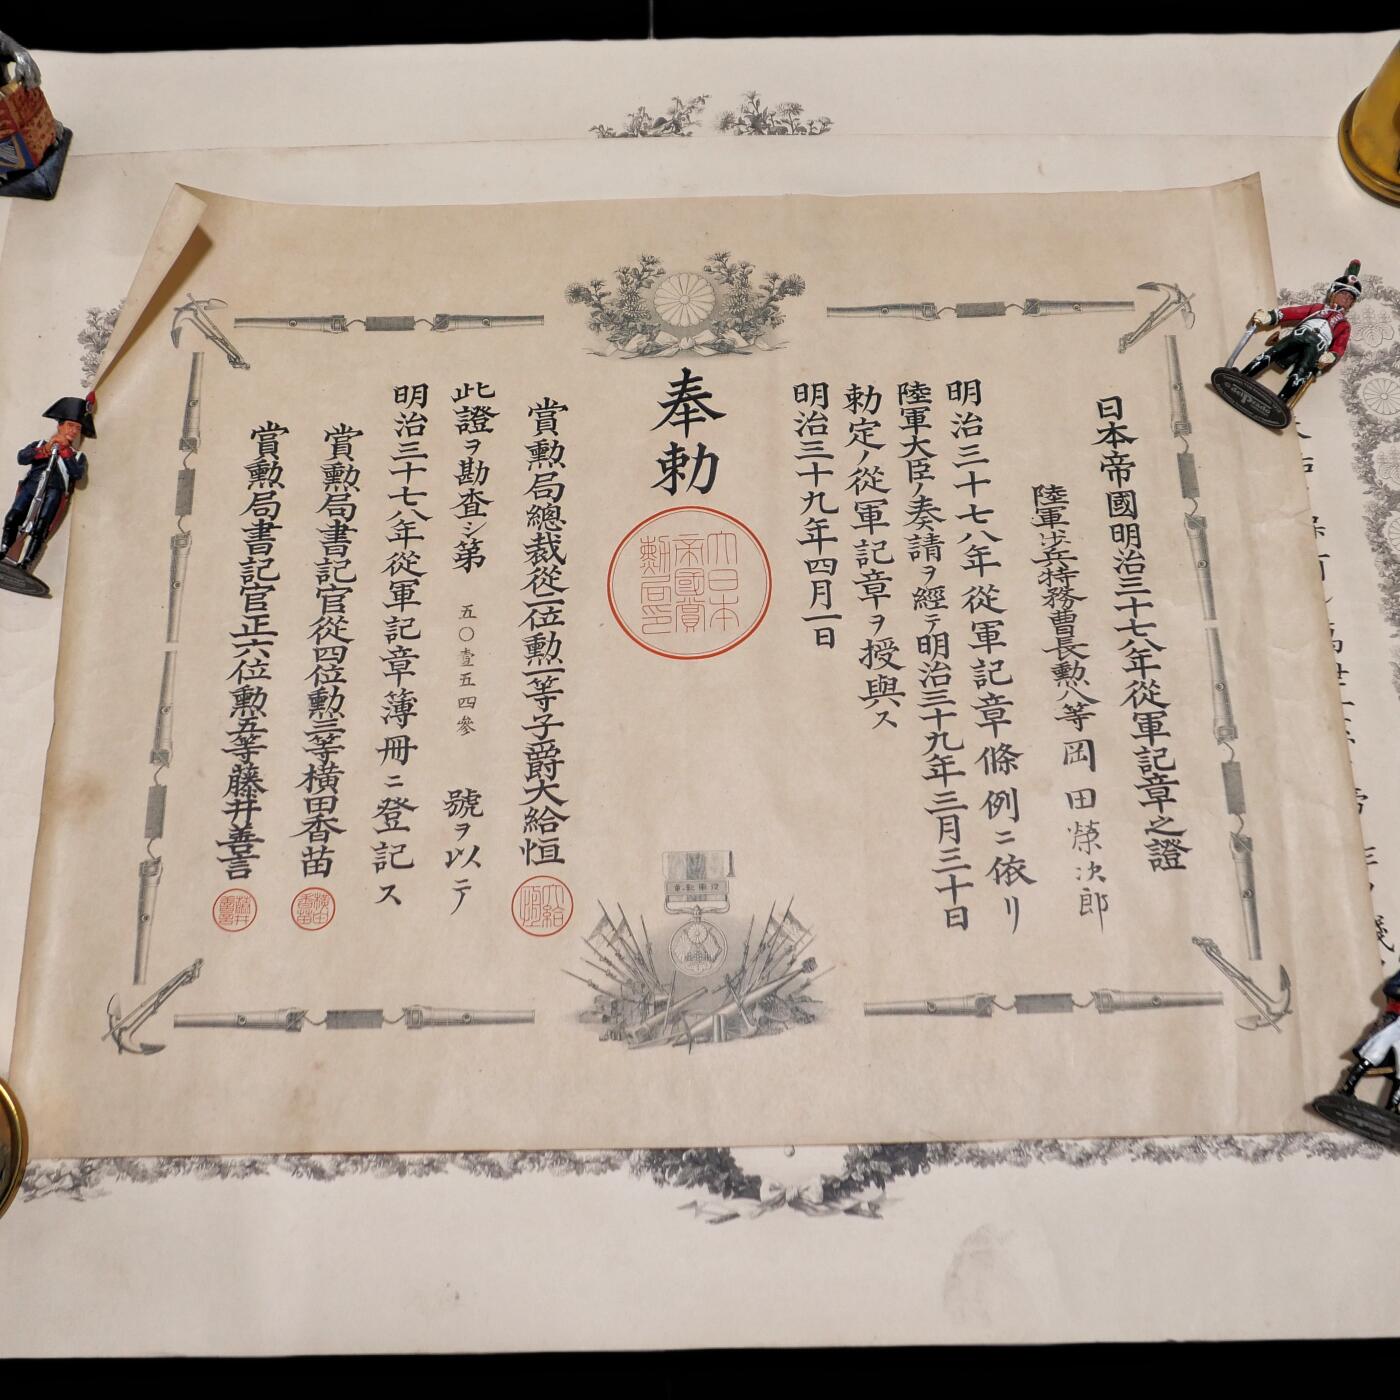 日本帝國明治三十七八年從軍記章之證
陸軍步兵特務曹長勲八等岡田榮次郎
明治三十七八年從軍記章條例ニ依リ
陸軍大臣ノ奏請ヲ經テ明治三十九年三月三十日
勅定ノ從軍記章ヲ授與ス
明治三十九年四月一日
奉勅
大日本
帝國賞
勲局印
賞勲局總裁從二位勲一等子爵大給恒
此證ヲ勘査シ第五〇壹五四參號ヲ以テ
明治三十七八年從軍記章簿冊ニ登記ス
賞勲局書記官從四位勲三等横田香苗
横田香苗
賞勲局書記官正六位勲五等藤井善言
藤井善言